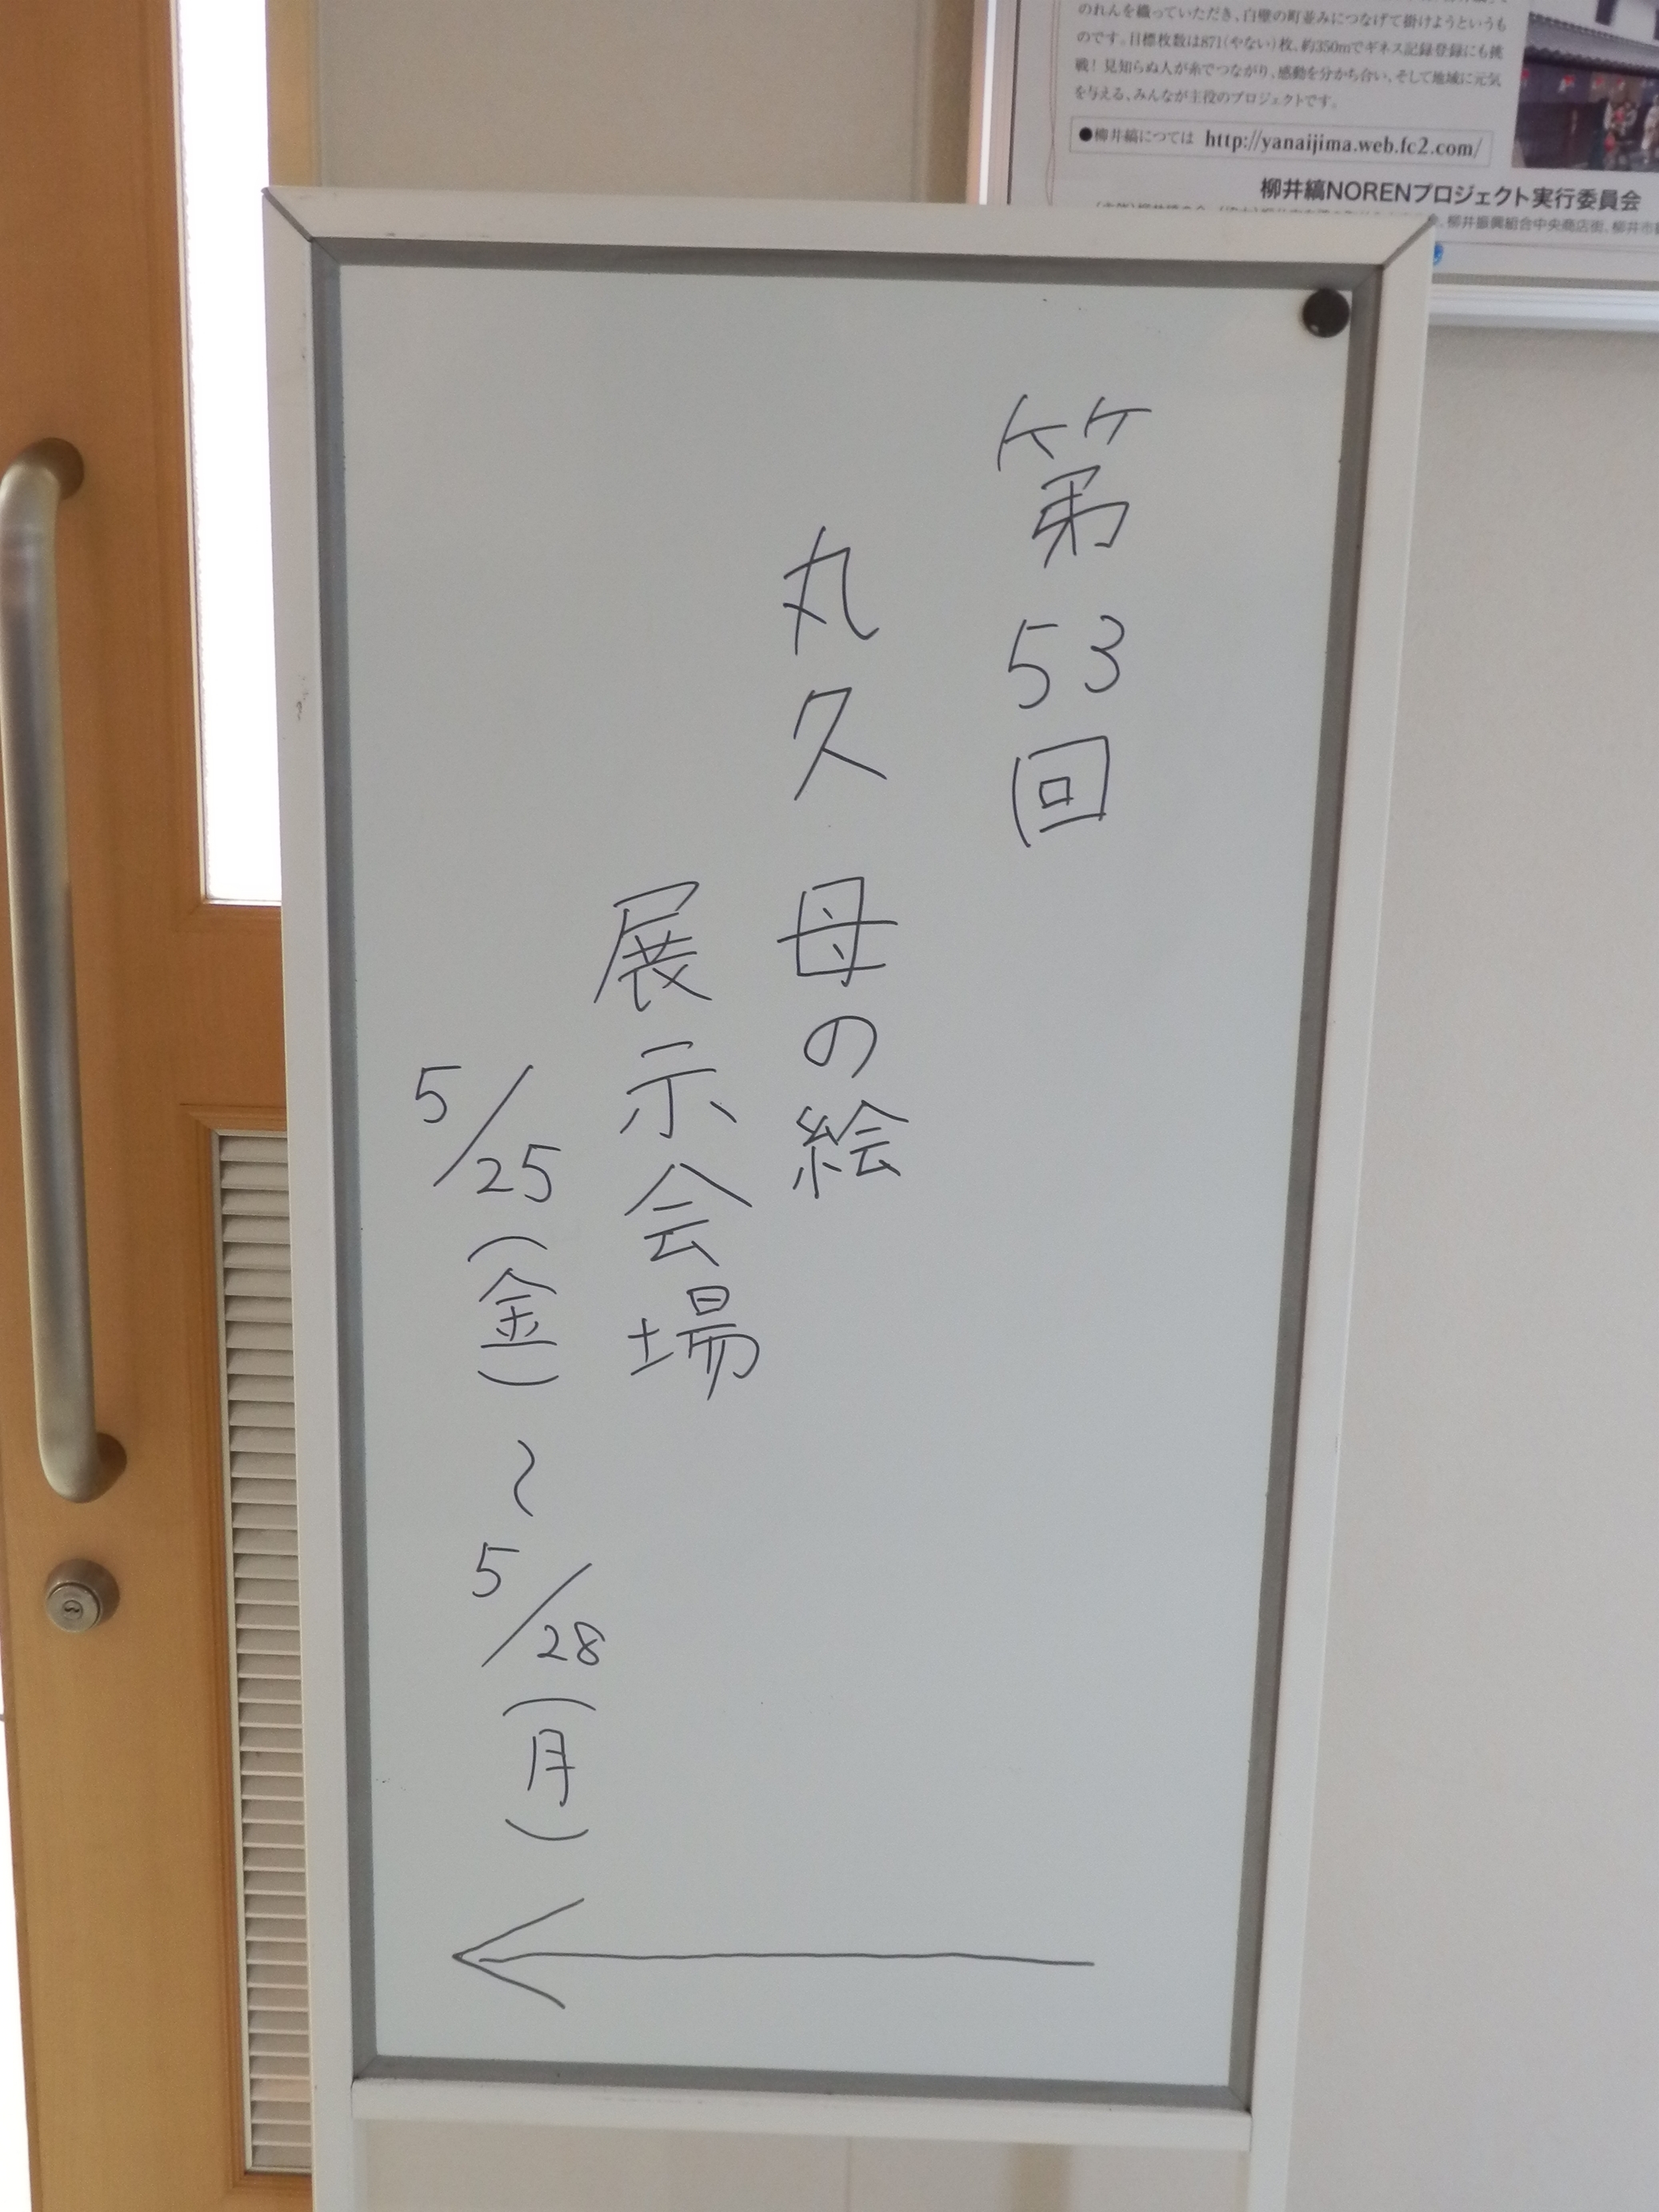 のれんを織っていただき、白壁の町並みにつなげて掛けようというも
のです。目標枚数は871(やない)枚、約350mでギネス記録登録にも挑
戦!見知らぬ人が糸でつながり、感動を分かち合い、そして地域に元気
を与える、みんなが主役のプロジェクトです。
●柳井縞につては http://yanaijima.web.fc2.com/
柳井縞NORENプロジェクト実行委員会
柳井振興組合中央商店街、柳井市
第53回
丸久 母の絵
展示会場
5/25(金)〜5/28(月)
←